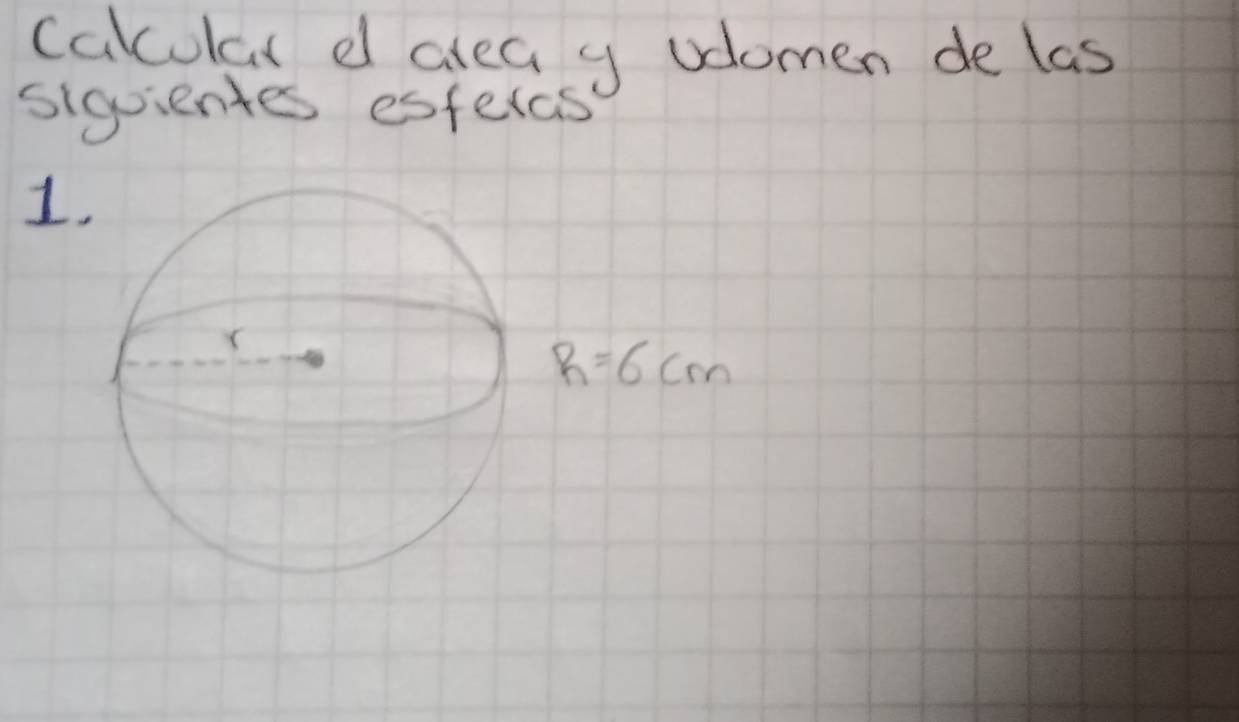 Calcular el area y volomen de las
siguientes esferas
1.
r
R=6cm